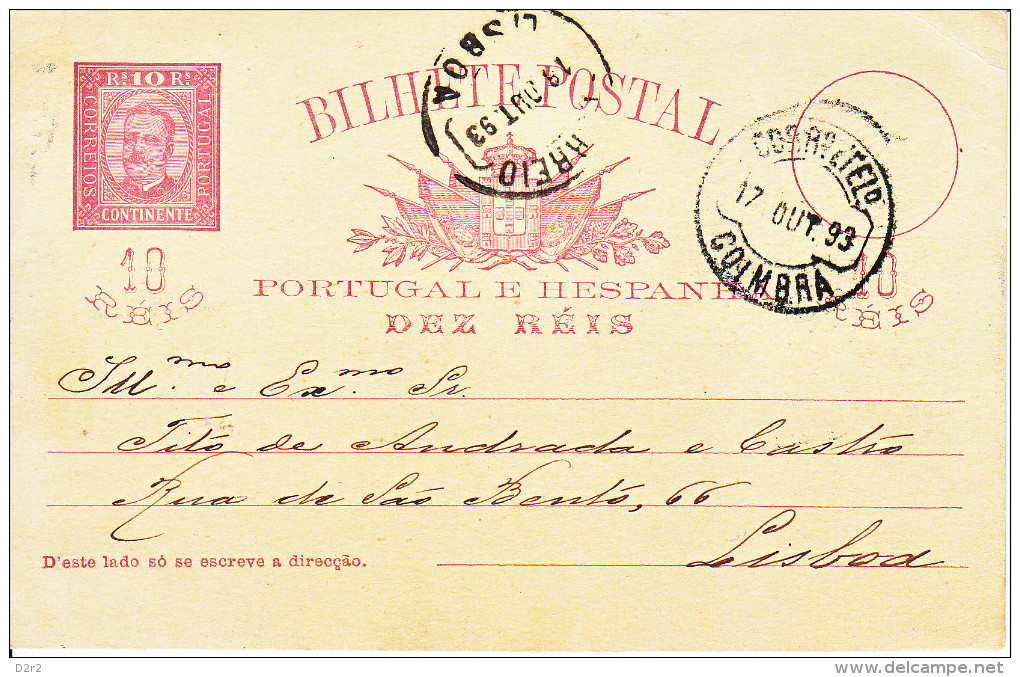 Rs 10 Rs
CORREIOS
PORTUGAL
CONTINENTE
BILHETE POSTAL
LISBOA
19 OUT. 93
RREIO
CORRO E TELO
17 OUT. 93
COIMBRA
10
RÉIS
PORTUGAL E HESPANHA
DEZ RÉIS
10
RÉIS
Ill.mo e Ex.mo Sr.
Titó de Andrada e Castro
Rua de São Bentó, 66
Lisboa
D'este lado só se escreve a direcção.
D2r2
delcampe.net